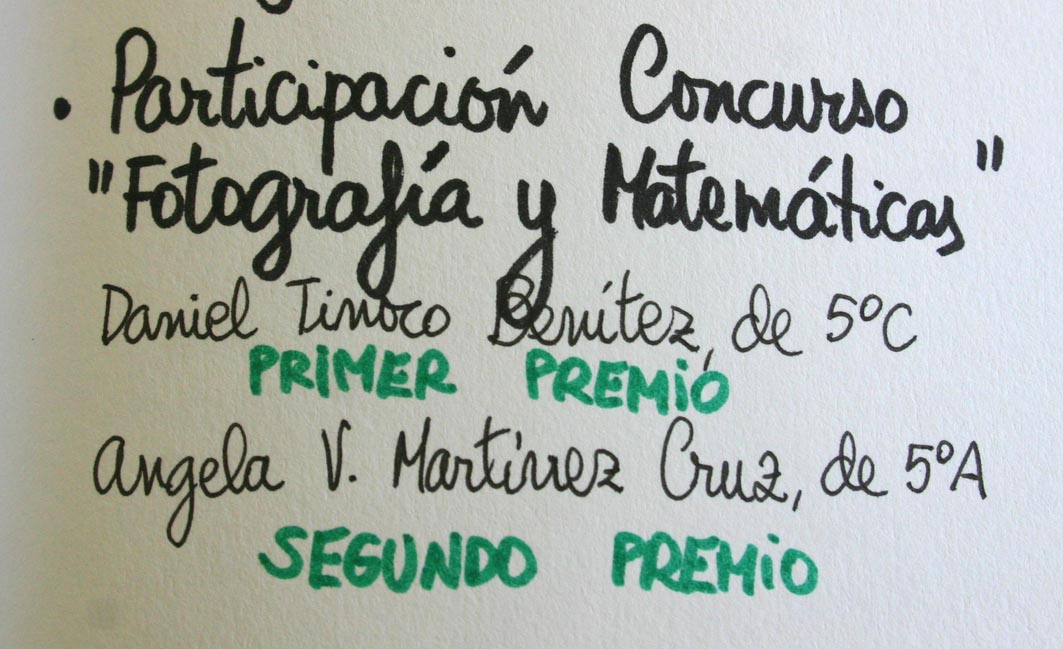 • Participación Concurso
"Fotografía y Matemáticas"
Daniel Tinoco Benítez, de 5ºC
PRIMER PREMIO
Angela V. Martínez Cruz, de 5ºA
SEGUNDO PREMIO